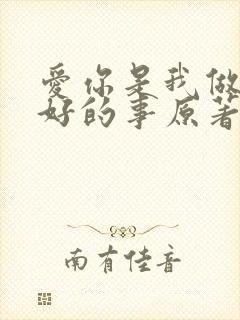 爱你是我做
好的事原著
南有佳音